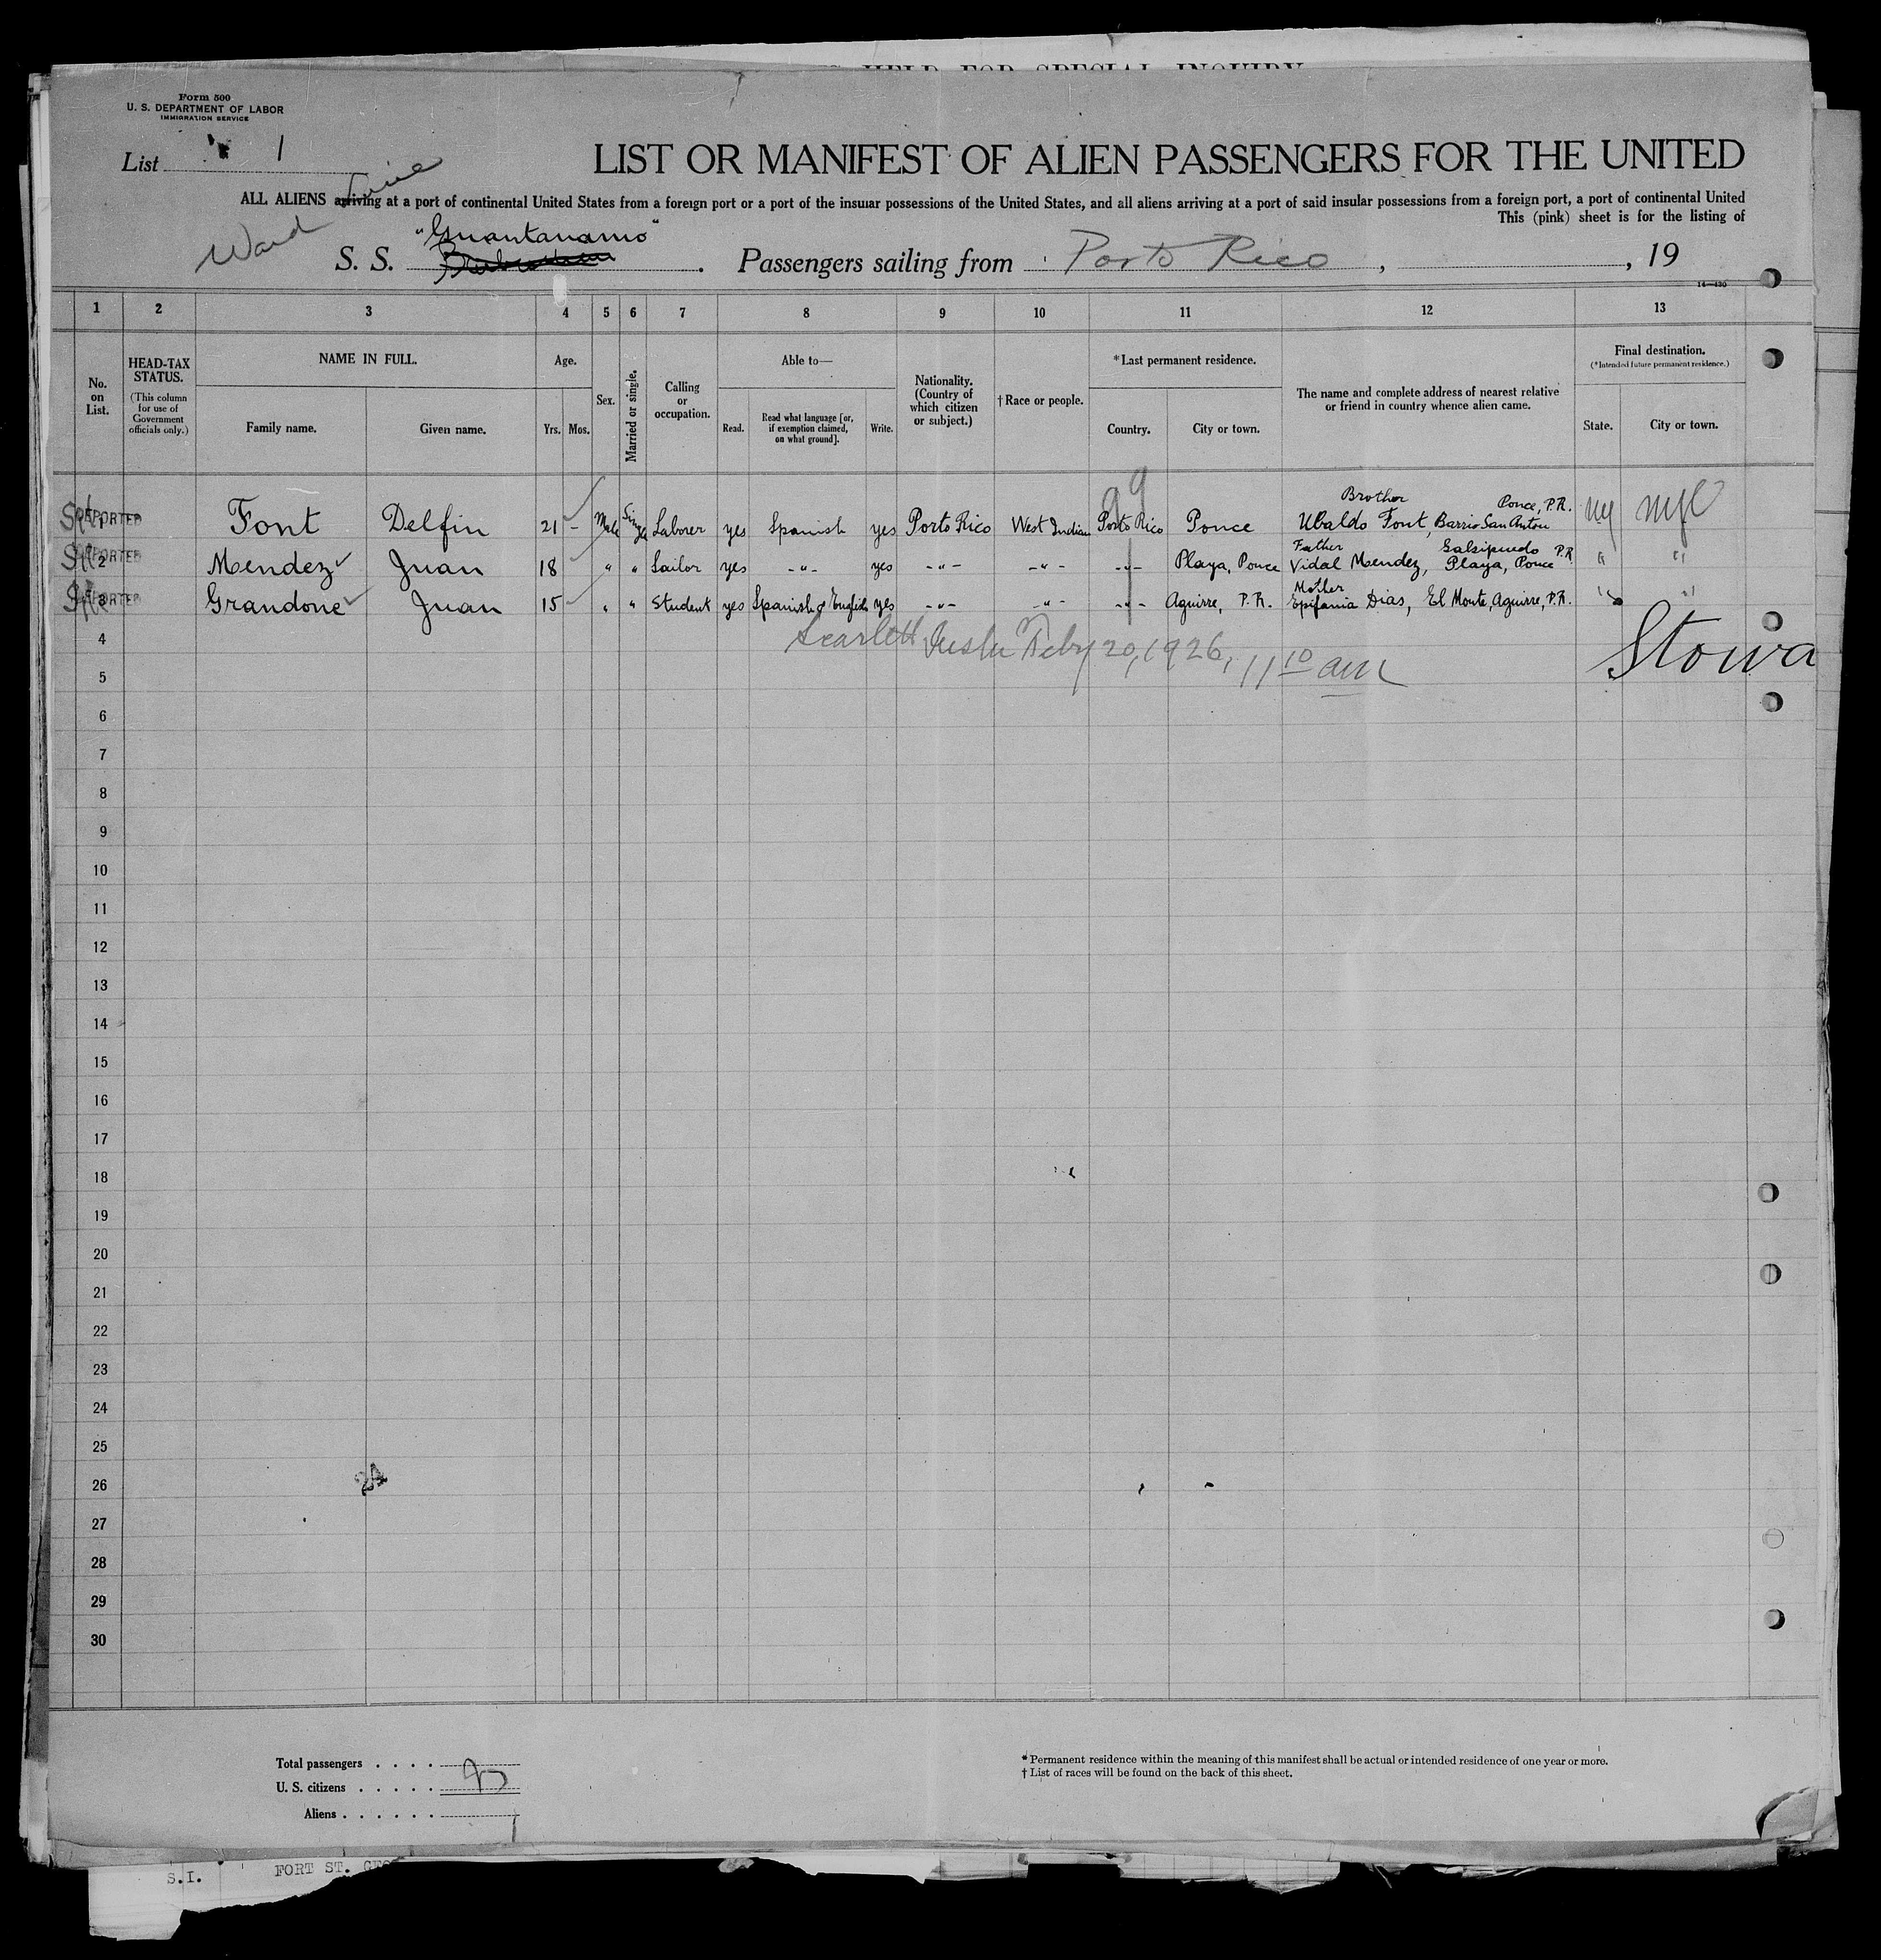 HELD FOR SPECIAL INQUIRY
Form 500
U. S. DEPARTMENT OF LABOR
IMMIGRATION SERVICE
List 1
LIST OR MANIFEST OF ALIEN PASSENGERS FOR THE UNITED
ALL ALIENS arriving at a port of continental United States from a foreign port or a port of the insular possessions of the United States, and all aliens arriving at a port of said insular possessions from a foreign port, a port of continental United
This (pink) sheet is for the listing of
Ward Line
S. S. "Guantanamo" . Passengers sailing from Porto Rico , , 19
14—430
1 2 3 4 5 6 7 8 9 10 11 12 13
No. on List.
HEAD-TAX STATUS.
(This column for use of Government officials only.)
NAME IN FULL.
Family name. Given name.
Age.
Yrs. Mos.
Sex.
Married or single.
Calling or occupation.
Able to—
Read. Read what language [or, if exemption claimed, on what ground]. Write.
Nationality. (Country of which citizen or subject.)
† Race or people.
*Last permanent residence.
Country. City or town.
The name and complete address of nearest relative or friend in country whence alien came.
Final destination.
(*Intended future permanent residence.)
State. City or town.
1 Font Delfin 21 - Male Single Laborer yes Spanish yes Porto Rico West Indian Porto Rico Ponce Brother Ubaldo Font, Barrio San Anton Ponce, P.R. NY NYC
2 Mendez Juan 18 " " Sailor yes -"- yes -"- -"- -"- Playa, Ponce Father Vidal Mendez, Salsipuedo Playa, Ponce P.R. " "
3 Grandone Juan 15 - " " Student yes Spanish & English yes -"- -"- -"- Aguirre, P.R. Mother Epifania Dias, El Monte, Aguirre, P.R. " "
4
Scarlett Feby 20, 1926, 11 10 am
Stowa
5
6
7
8
9
10
11
12
13
14
15
16
17
18
19
20
21
22
23
24
25
26
24
27
28
29
30
Total passengers . . . .
U. S. citizens . . . . .
Aliens . . . . . .
* Permanent residence within the meaning of this manifest shall be actual or intended residence of one year or more.
† List of races will be found on the back of this sheet.
S.I. FORT ST. GEO